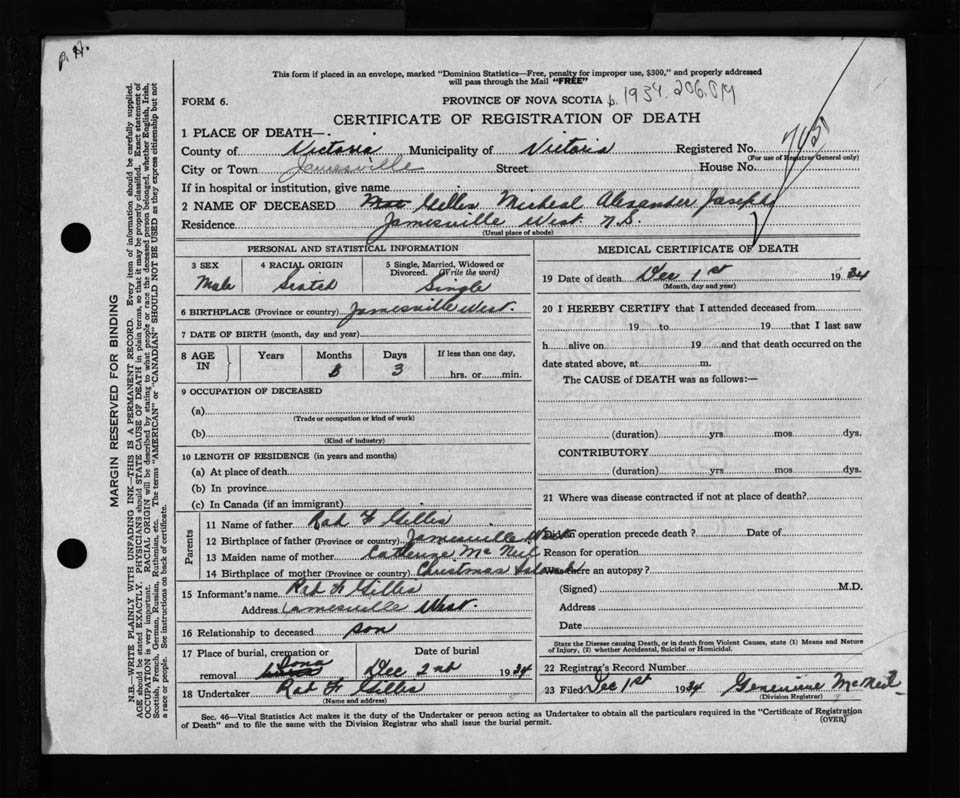 P. H.
This form if placed in an envelope, marked "Dominion Statistics—Free, penalty for improper use, $300," and properly addressed
will pass through the Mail "FREE"
FORM 6.
PROVINCE OF NOVA SCOTIA
1934.
CERTIFICATE OF REGISTRATION OF DEATH
1 PLACE OF DEATH—
County of Victoria Municipality of Victoria Registered No.
(For use of Registrar General only)
City or Town Jamesville Street House No.
If in hospital or institution, give name
2 NAME OF DECEASED Gillis Micheal Alexander Joseph
Residence Jamesville West N.S.
(Usual place of abode)
PERSONAL AND STATISTICAL INFORMATION
3 SEX
Male
4 RACIAL ORIGIN
Scotch
5 Single, Married, Widowed or
Divorced. (Write the word)
Single
6 BIRTHPLACE (Province or country) Jamesville West.
7 DATE OF BIRTH (month, day and year)
8 AGE
IN
Years
Months
Days
3
If less than one day,
hrs. or min.
9 OCCUPATION OF DECEASED
(a)
(Trade or occupation or kind of work)
(b)
(Kind of industry)
10 LENGTH OF RESIDENCE (in years and months)
(a) At place of death
(b) In province
(c) In Canada (if an immigrant)
Parents
11 Name of father F Gillis
12 Birthplace of father (Province or country) Jamesville West
13 Maiden name of mother Catherine Mc Neil
14 Birthplace of mother (Province or country) Christmas Island
15 Informant's name F Gillis
Address Jamesville West.
16 Relationship to deceased son
17 Place of burial, cremation or
removal Iona
Date of burial
Dec 2nd 1934
18 Undertaker F Gillis
(Name and address)
MEDICAL CERTIFICATE OF DEATH
19 Date of death Dec 1st 1934
(Month, day and year)
20 I HEREBY CERTIFY that I attended deceased from
19 to 19 that I last saw
h alive on 19 and that death occurred on the
date stated above, at m.
The CAUSE of DEATH was as follows:—
(duration) yrs mos dys.
CONTRIBUTORY
(duration) yrs mos dys.
21 Where was disease contracted if not at place of death?
Did an operation precede death? Date of
Reason for operation
Was there an autopsy?
(Signed) M.D.
Address
Date
State the Disease causing Death, or in death from Violent Causes, state (1) Means and Nature
of Injury, (2) whether Accidental, Suicidal or Homicidal.
22 Registrar's Record Number
23 Filed Dec 1st 1934 Genevieve McNeil
(Division Registrar)
Sec. 46—Vital Statistics Act makes it the duty of the Undertaker or person acting as Undertaker to obtain all the particulars required in the "Certificate of Registration
of Death" and to file the same with the Division Registrar who shall issue the burial permit.
(OVER)
MARGIN RESERVED FOR BINDING
N.B.—WRITE PLAINLY WITH UNFADING INK—THIS IS A PERMANENT RECORD. Every item of information should be carefully supplied.
AGE should be stated EXACTLY. PHYSICIANS should STATE CAUSE OF DEATH in plain terms, so that it may be properly classified. Exact statement of
OCCUPATION is very important. RACIAL ORIGIN will be described by stating to what people or race the deceased person belonged, whether English, Irish,
Scottish, French, German, Russian, Ruthenian, etc. The terms "AMERICAN" or "CANADIAN" SHOULD NOT BE USED as they express citizenship but not
a race or people. See instructions on back of certificate.